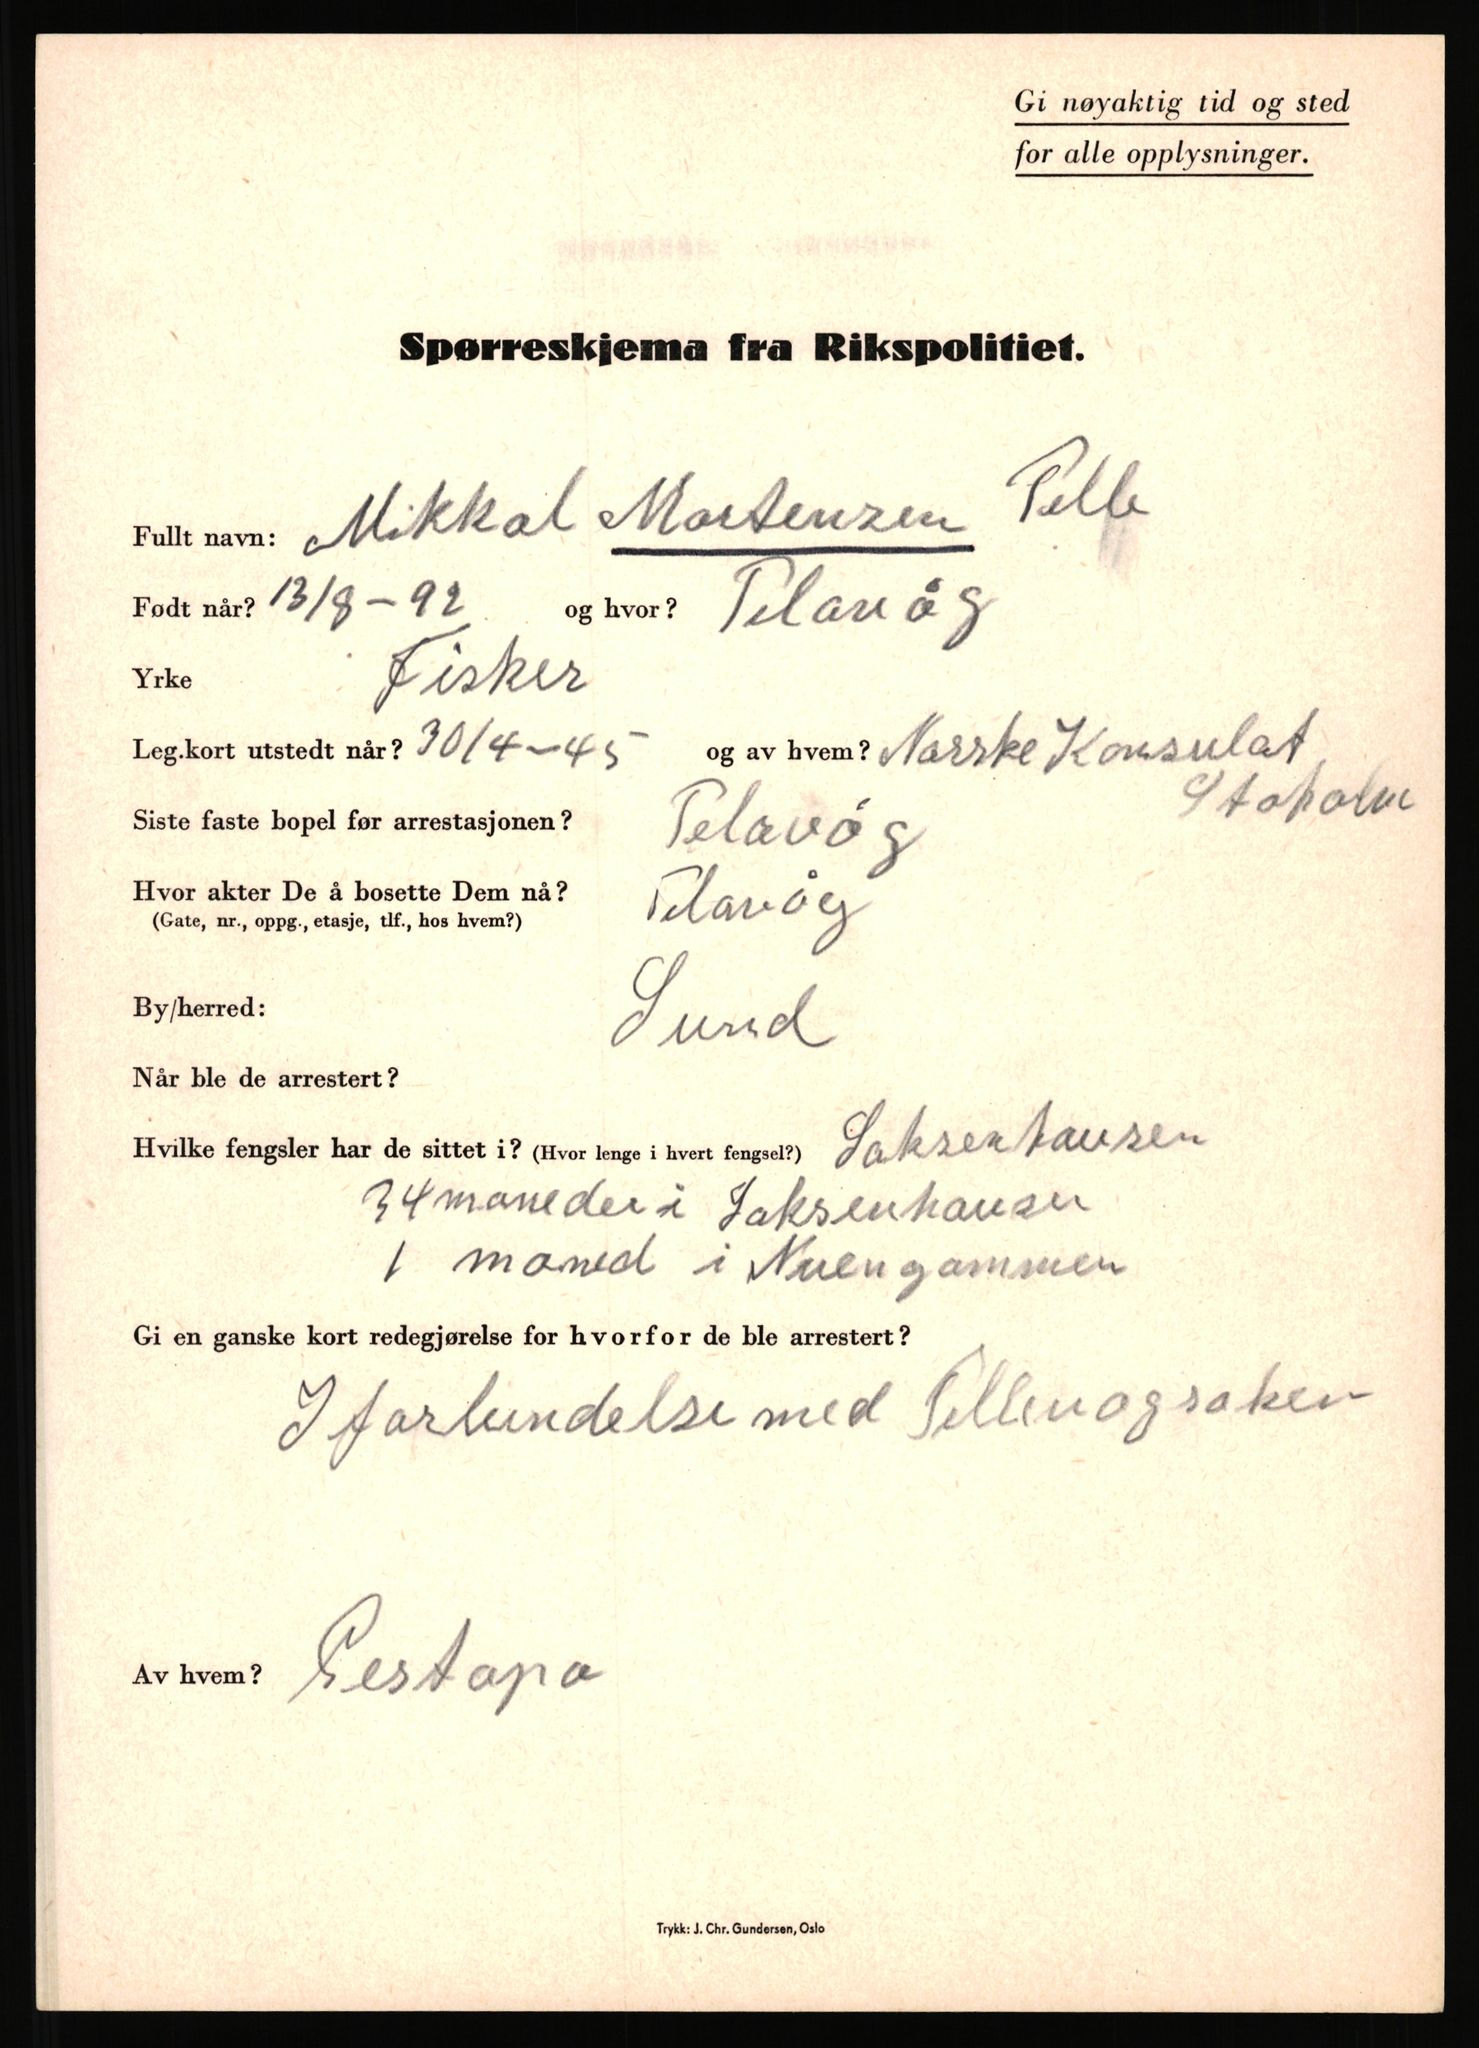 Gi nøyaktig tid og sted
for alle opplysninger.
Spørreskjema fra Rikspolitiet.
Fullt navn: Mikkal Mortensen Telle
Født når? 13/8-92 og hvor? Telavåg
Yrke Fisker
Leg.kort utstedt når? 30/4-45 og av hvem? Norske Konsulat
Stokolm
Siste faste bopel før arrestasjonen? Telavåg
Hvor akter De å bosette Dem nå? Telavåg
(Gate, nr., oppg., etasje, tlf., hos hvem?)
By/herred: Sund
Når ble de arrestert?
Hvilke fengsler har de sittet i? (Hvor lenge i hvert fengsel?) Saksenhausen
34 moneder i Saksenhausen
1 moned i Nuengammen
Gi en ganske kort redegjørelse for hvorfor de ble arrestert?
I forbindelse med Tellevogsaken
Av hvem? Gestapo
Trykk: J. Chr. Gundersen, Oslo